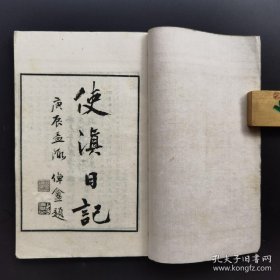 使滇日記
庚辰孟陬
題
孔夫子旧书网